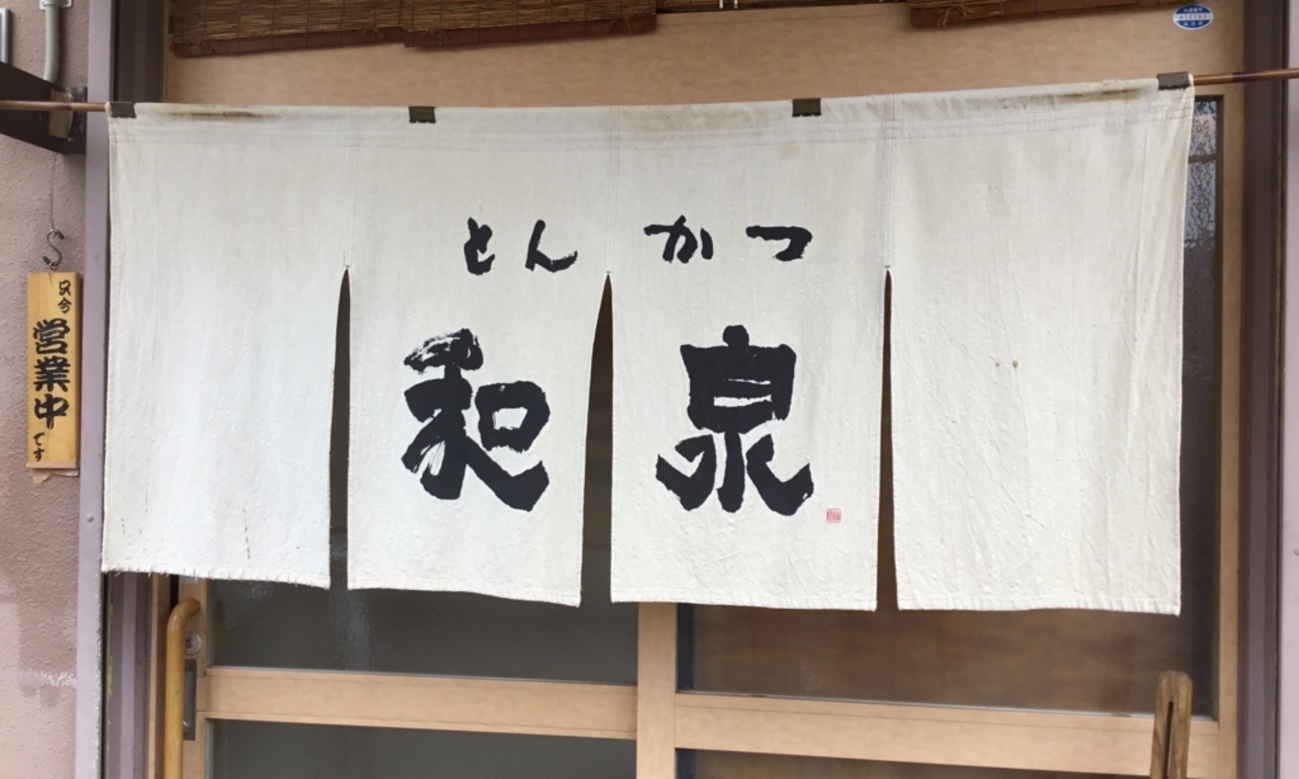 とんかつ
和泉
只今
営業中
です